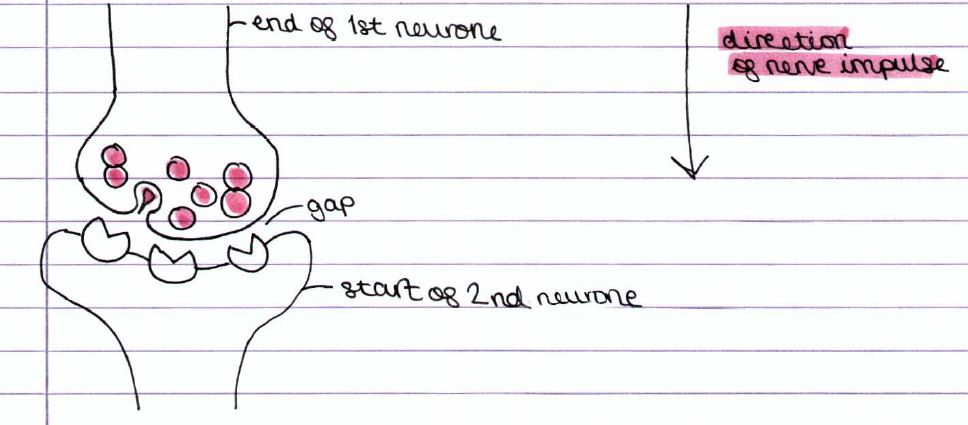 end of 1st neurone
direction
of nerve impulse
gap
start of 2nd neurone